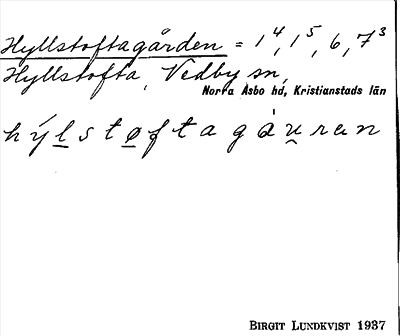 Hyllstoftagården = 1⁴, 1⁵, 6, 7³
Hyllstofta, Vedby sn,
Norra Åsbo hd, Kristianstads län
hýlstøftagȧu̯ran
BIRGIT LUNDKVIST 1937